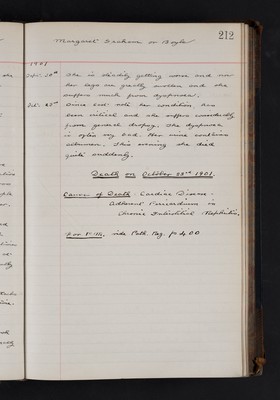 212
Margaret Graham or Boyle
1901
Sept. 20th She is steadily getting worse and now
her legs are greatly swollen and she
suffers much from dyspnoea.
Oct. 23rd Since last note her condition has
been critical and she suffers considerably
from general dropsy. The dyspnoea
is often very bad. Her urine contains
albumen. This evening she died
quite suddenly.
Death on October 23rd 1901.
Cause of Death: Cardiac Disease.
Adherent Pericardium in
Chronic Interstitial Nephritis.
For P.M. vide Path. Reg. p. 400